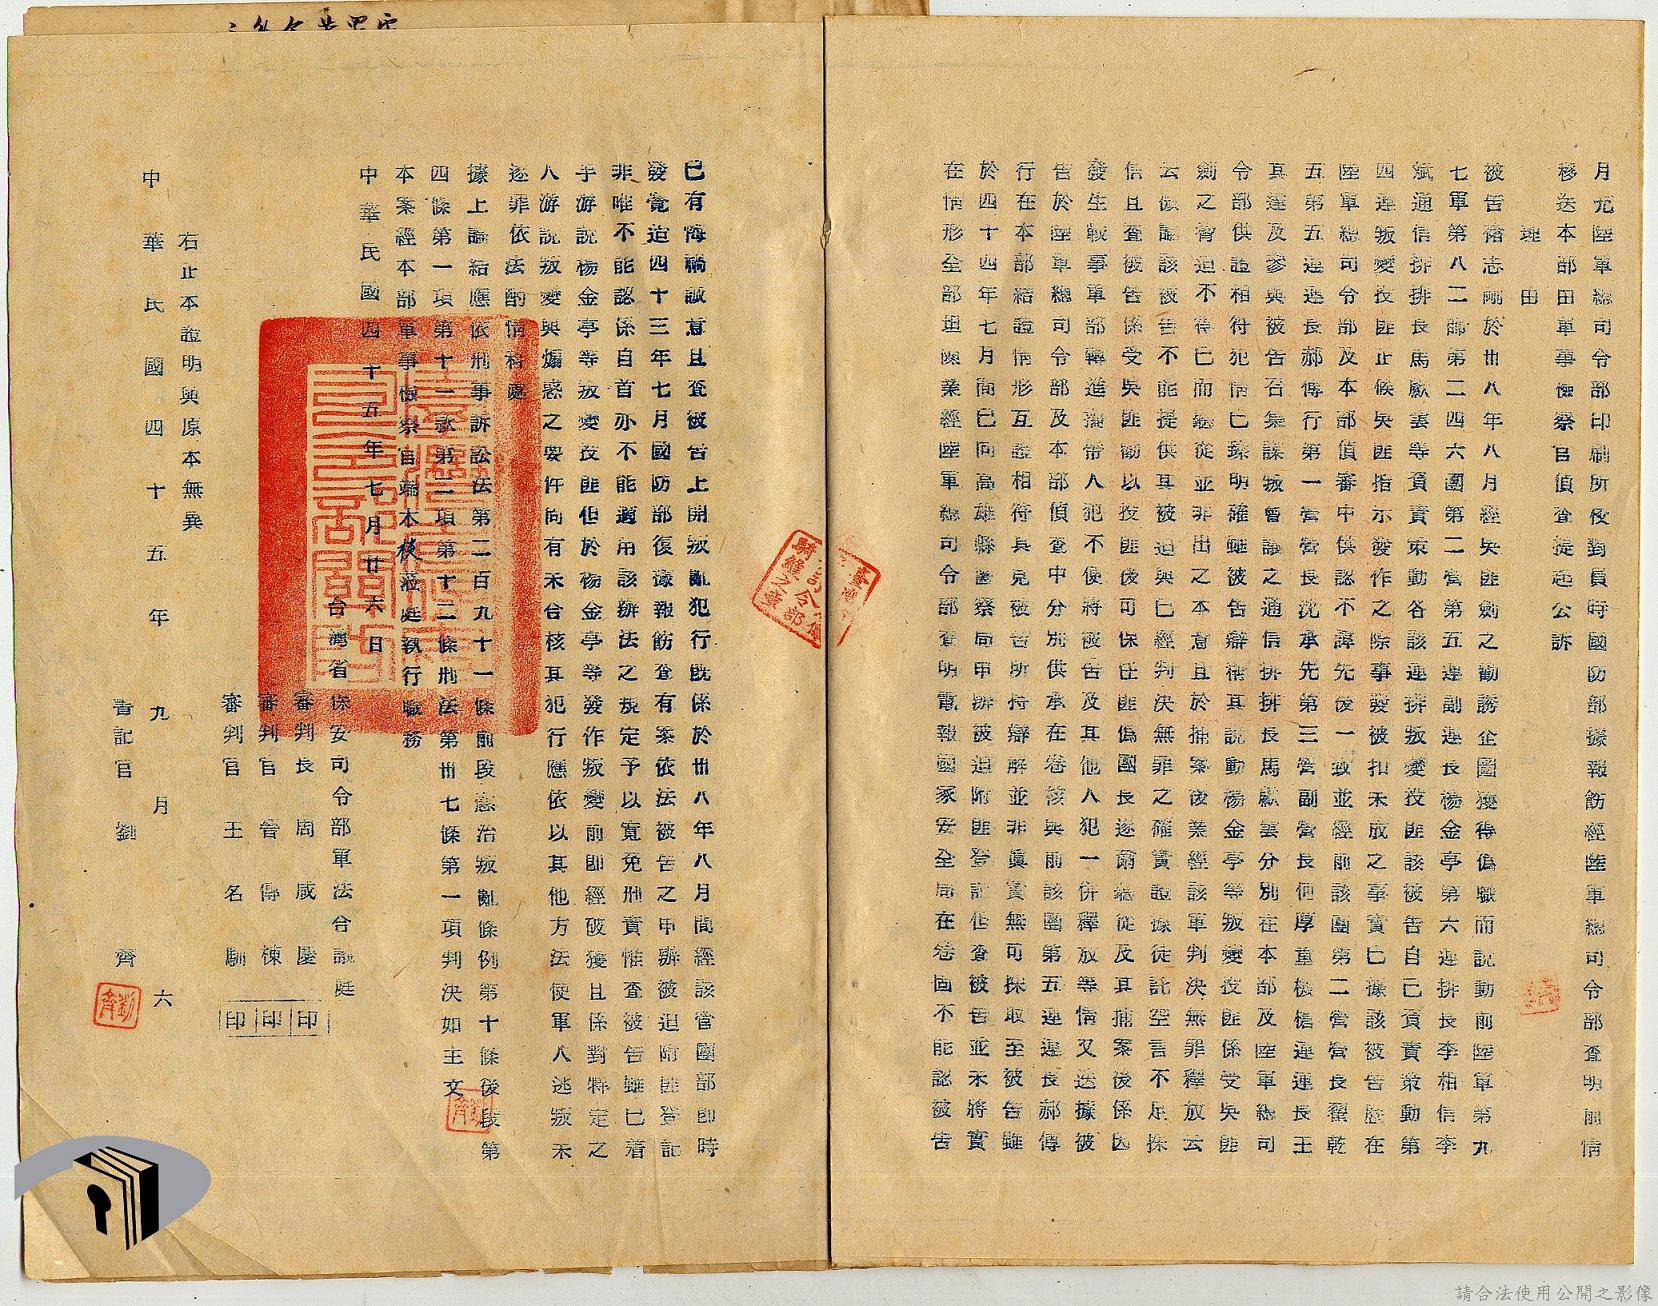 月充陸軍總司令部印刷所校對員時國防部據報飭經陸軍總司令部查明前情
移送本部由軍事檢察官偵查提起公訴
理由
被告褚志剛於卅八年八月經吳匪劍之勸誘企圖獲得偽職而説動前陸軍第九
七軍第八二師第二四六團第二營第五連副連長楊金亭第六連排長李相信李
斌通信排排長馬獻雲等負責策動各該連排叛變投匪該被告自己負責策動第
四連叛變投匪止候吳匪指示發作之際事發被扣未成之事實已據該被告歷在
陸軍總司令部及本部偵審中供認不諱先後一致並經前該團第二營營長翟乾
五第五連連長郝傳行第一營營長沈承先第三營副營長何厚重機槍連連長王
其遂及參與被告召集謀叛會議之通信排排長馬獻雲分別在本部及陸軍總司
令部供證相符犯情已臻明確雖被告辯稱其説動楊金亭等叛變投匪係受吳匪
劍之脅迫不得已而聽從並非出之本意且於捕案後業經該軍判決無罪釋放云
云惟諭該被告不能提供其被迫與已經判決無罪之確實證據徒託空言不足採
信且查被告係受吳匪勸以投匪後可保任匪偽團長遂爾聽從及其捕案後係因
發生戰事軍部轉進攜帶人犯不便將被告及其他人犯一併釋放等情又迭據被
告於陸軍總司令部及本部偵查中分別供承在卷核與前該團第五連連長郝傳
行在本部結證情形互證相符具見被告所持辯解並非真實無可採取至被告雖
於四十四年七月間已向高雄縣警察局申辦被迫附匪登記但查被告並未將實
在情形全部坦陳業經陸軍總司令部查明電報國家安全局在卷固不能認被告
已有悔禍誠意且查被告上開叛亂犯行既係於卅八年八月間經該管團部即時
發覺迨四十三年七月國防部復據報飭查有案依法被告之申辦被迫附匪登記
非唯不能認係自首亦不能適用該辦法之規定予以寬免刑責惟查被告雖已着
手游説楊金亭等叛變投匪但於楊金亭等發作叛變前即經破獲且係對特定之
人游説叛變與煽惑之要件尚有未合核其犯行應依以其他方法使軍人逃叛未
遂罪依法酌情科處
據上論結應依刑事訴訟法第二百九十一條前段懲治叛亂條例第十條後段第
四條第一項第十一款第二項第十二條刑法第卅七條第一項判決如主文
本案經本部軍事檢察官端木棪蒞庭執行職務
中華民國四十五年七月廿六日
台灣省保安司令部軍法合議庭
審判長 周咸慶 印
審判官 曾傳棟 印
審判官 王名馴 印
右正本證明與原本無異
中華民國四十五年九月六
書記官 劉齊
請合法使用公開之影像